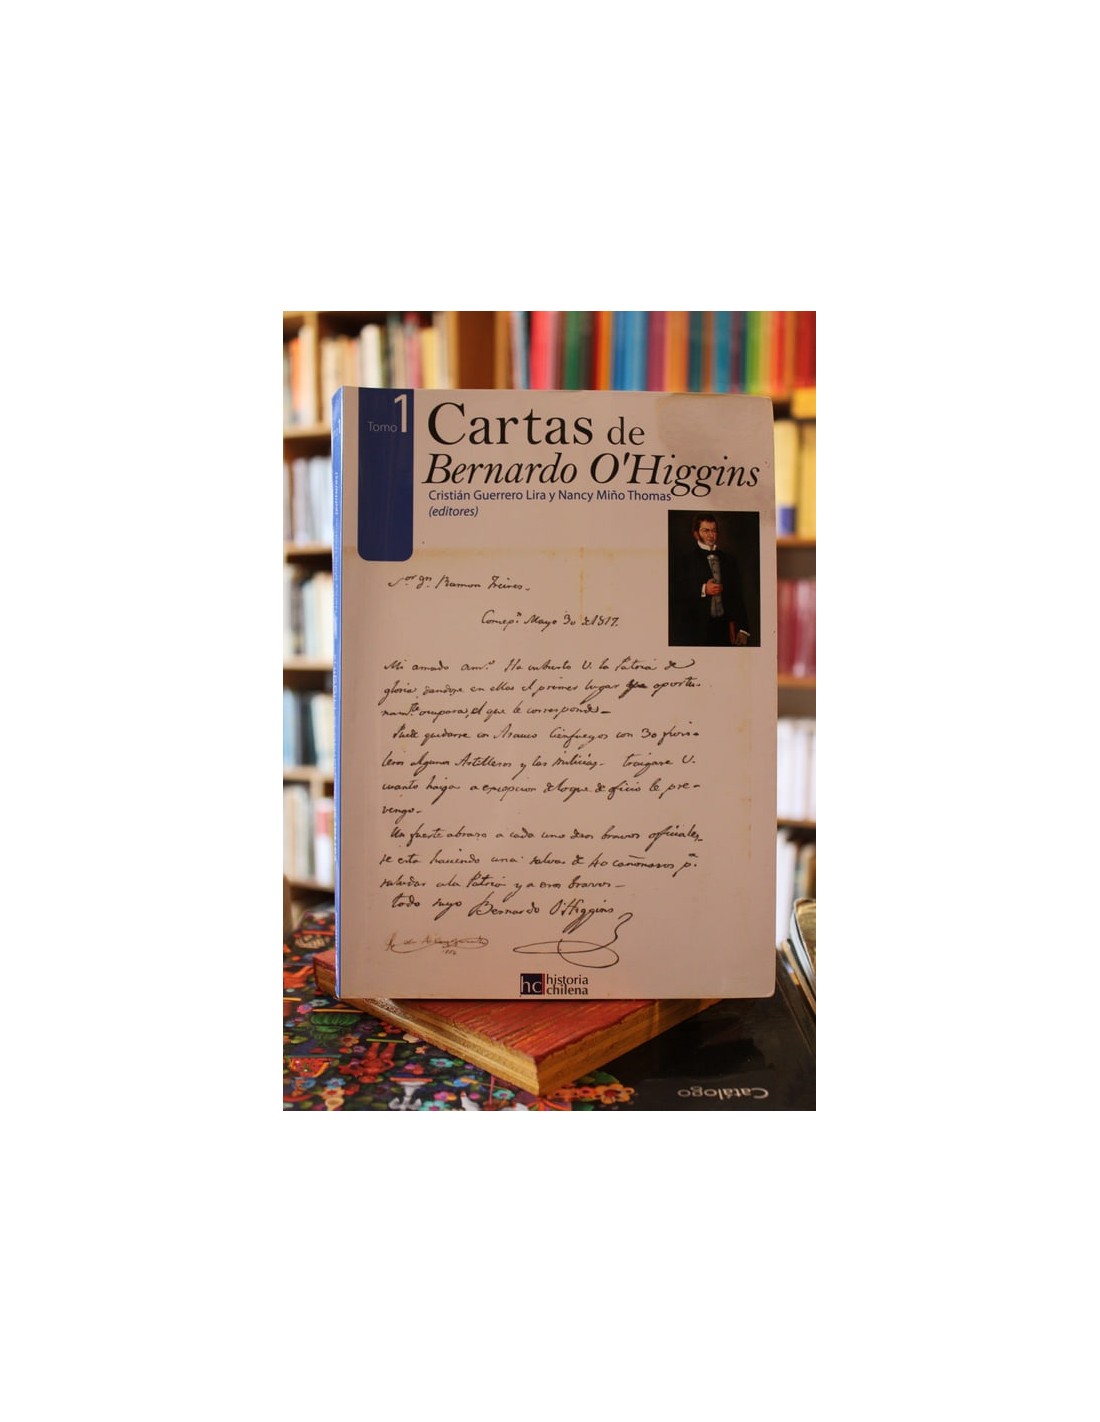 Tomo 1
Cartas de
Bernardo O'Higgins
Cristián Guerrero Lira y Nancy Miño Thomas
(editores)
Sor Dn. Ramon Freires.
Concepn. Mayo 30 de 1817.
Mi amado amo. Ha cubierto V. la Patria de
gloria, dandose en ellas el primer lugar que oportu-
namte. ocupara, el que le corresponde
Puede quedarse en Arauco Cienfuegos con 30 fusi-
leros algunos Artilleros y las milicias. traigase V.
cuanto haiga a excepcion de lo que de oficio le pre-
vengo.
Un fuerte abraso a cada uno de esos bravos oficiales
se esta haciendo una salva de 40 cañonasos pa.
saludar a la Patria y a esos bravos
todo suyo Bernardo O'Higgins
hc historia
chilena
Catálogo